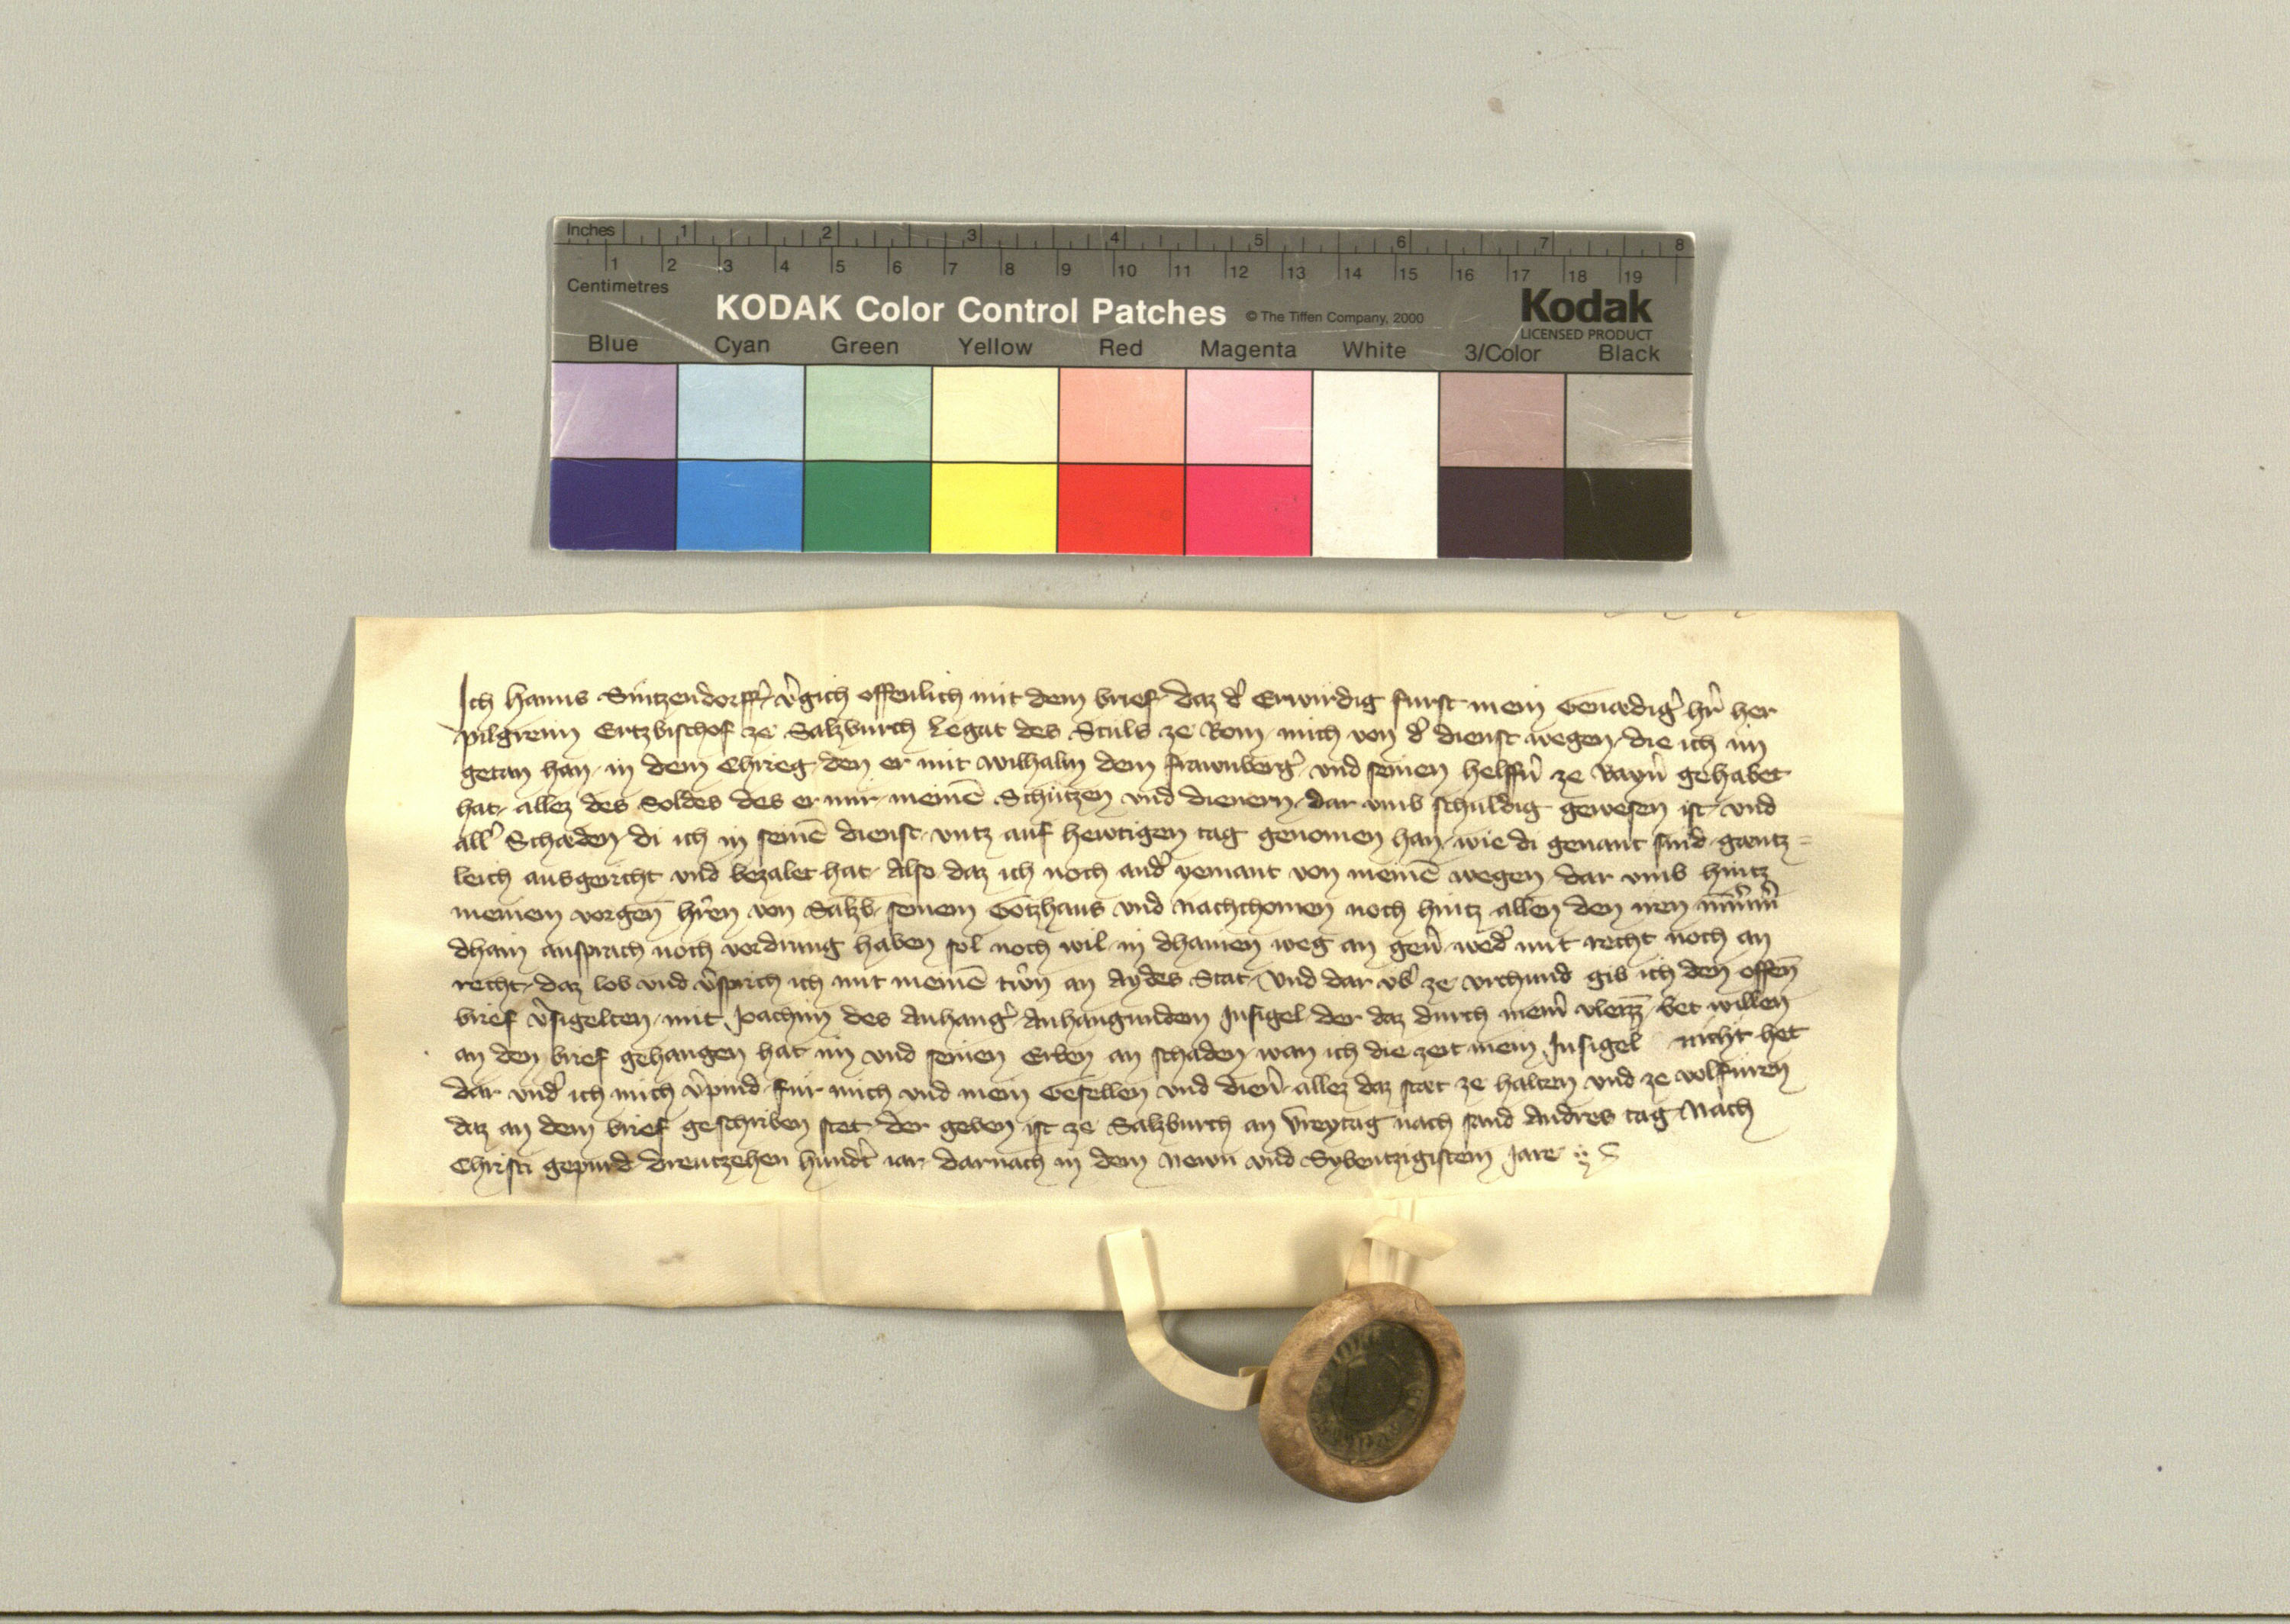 Inches 1 2 3 4 5 6 7 8
1 2 3 4 5 6 7 8 9 10 11 12 13 14 15 16 17 18 19
Centimetres
KODAK Color Control Patches © The Tiffen Company, 2000 Kodak
LICENSED PRODUCT
Blue Cyan Green Yellow Red Magenta White 3/Color Black
Ich Hanns Sintzendorff̉ v̉gich offenlich mit dem brief daz d̉ Erwirdig furst mein Genædig̉ hr̉ her
pilgreim Ertzbischof ze Salzburch Legat des Stuls ze Rom mich von d̉ dienst wegen die ich im
getan han in dem Chrieg den er mit Wilhalm dem frawnberg̉ vnd seinen helffn̉ ze Bayr̉n gehabet
hat allez des Soldes des er mir meinē Schützen vnd dienern dar vmb schuldig gewesen ist vnd
all̉ Schæden di ich in seinē dienst vntz auf hewtigen tag genomen han wie di genant sind gæntz=
leich ausgericht vnd bezalet hat Also daz ich noch and̉ yemant von meinē wegen dar vmb hintz
meinem vorgen̄ hr̉ren von Salzb̄ seinem Gotzhaus vnd nachchomen noch hintz allen den iren
dhain ansprach noch vordrung haben sol noch wil in dhainen weg an wed̉ mit recht noch an
recht daz lob vnd v̉sprich ich mit meinē trw̉n an Aydes Stat Vnd dar vb̉ ze vrchund gib ich den offen̄
brief v̉sigelten mit Joachim des Anhang̉ Anhangundem Insigel der daz durch mein̉ vleizz̄ bet willen
an den brief gehangen hat im vnd seinen Erben an schaden wan ich die zeit mein Insigel nicht het
dar vnd̉ ich mich v̉pind für mich vnd mein Gesellen vnd dien̉ allez daz stæt ze halten vnd ze volfüren
daz an dem brief geschriben stet der geben ist ze Salzburch an vreytag nach sand Andres tag Nach
Christi gepurd dreutzehen hundt̉ iar darnach in dem Newn vnd Sybentzigistem Jare